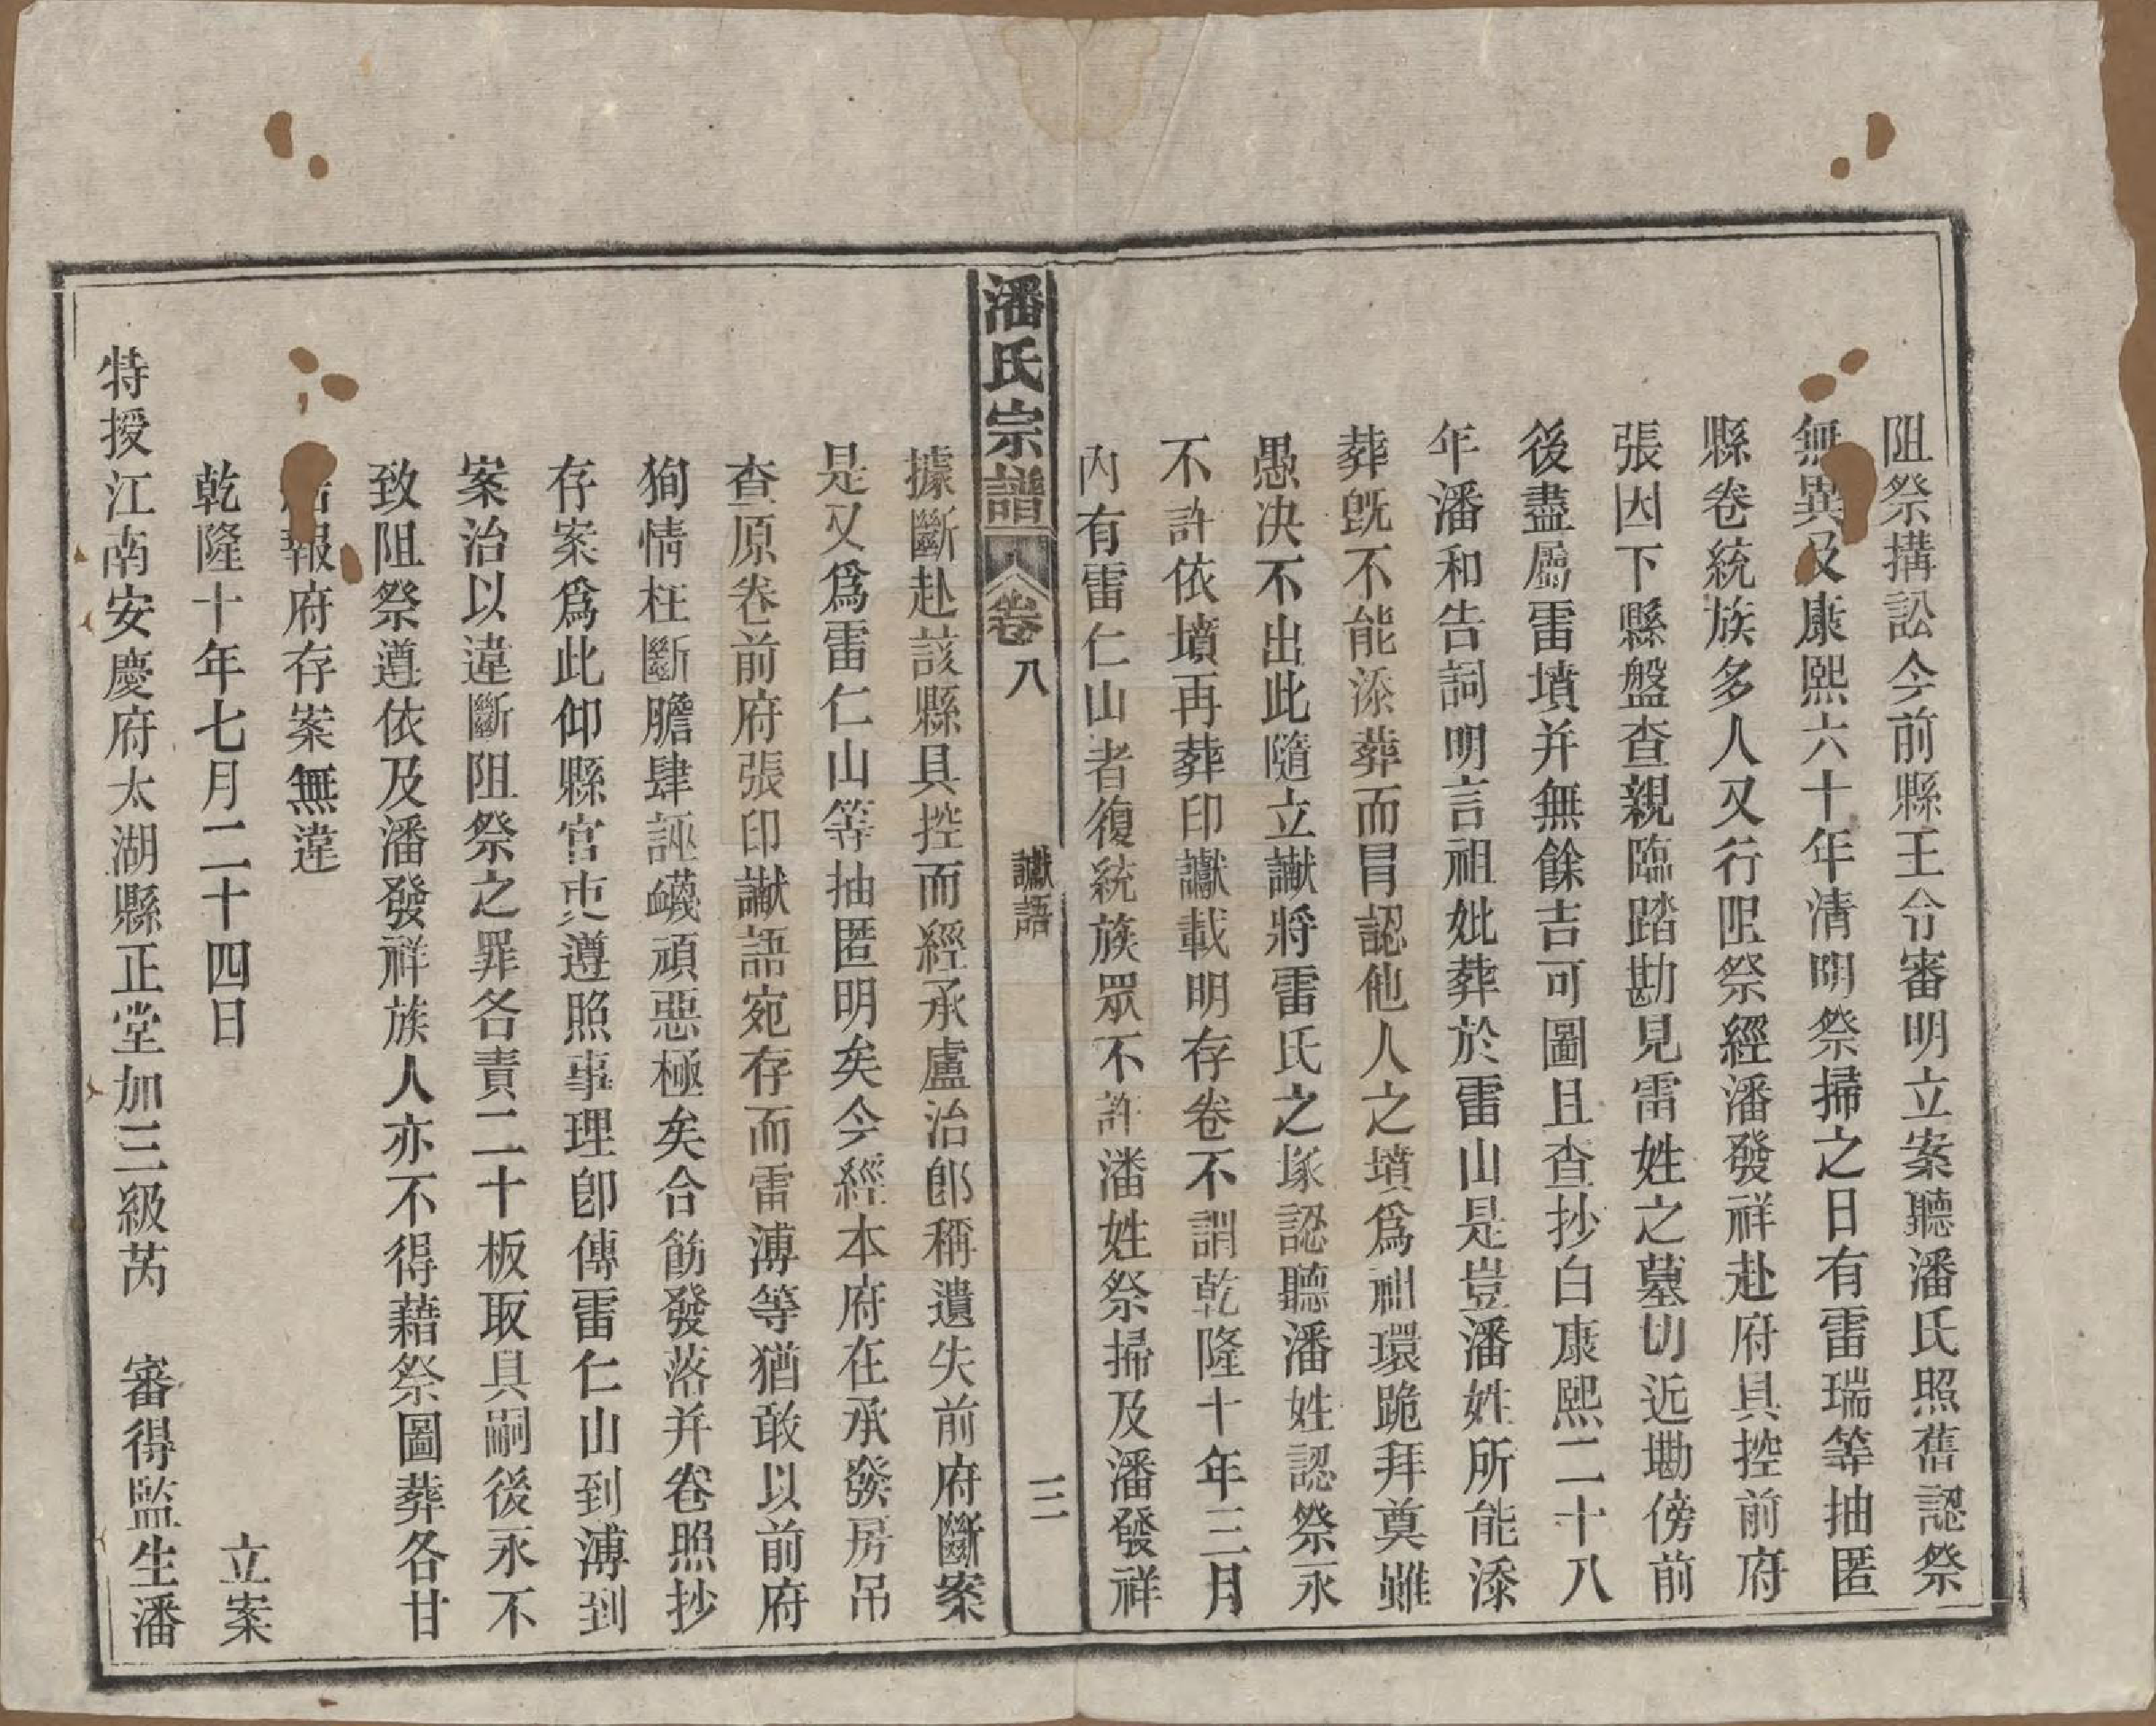 阻祭搆訟今前縣王令審明立案聽潘氏照舊認祭
無異及康熙六十年清明祭掃之日有雷瑞等抽匿
縣卷統族多人又行阻祭經潘發祥赴府具控前府
張因下縣盤查親臨踏勘見雷姓之墓切近墈傍前
後盡屬雷墳并無餘吉可圖且查抄白康熙二十八
年潘和告詞明言祖妣葬於雷山是豈潘姓所能添
葬旣不能添葬而冐認他人之墳爲祖環跪拜奠雖
愚决不出此隨立讞將雷氏之塚認聽潘姓認祭永
不許依墳再葬印讞載明存卷不謂乾隆十年三月
內有雷仁山者復統族眾不許潘姓祭掃及潘發祥
潘氏宗譜 卷八 讞語 三
據斷赴該縣具控而經承盧治郎稱遺失前府斷案
是又爲雷仁山等抽匿明矣今經本府在承發房吊
查原卷前府張印讞語宛存而雷溥等猶敢以前府
狥情枉斷膽肆誣衊頑惡極矣合飭發落并卷照抄
存案爲此仰縣官吏遵照事理卽傳雷仁山到溥到
案治以違斷阻祭之罪各責二十板取具嗣後永不
致阻祭遵依及潘發祥族人亦不得藉祭圖葬各甘
結報府存案無違
乾隆十年七月二十四日 立案
特授江南安慶府太湖縣正堂加三級芮 審得監生潘